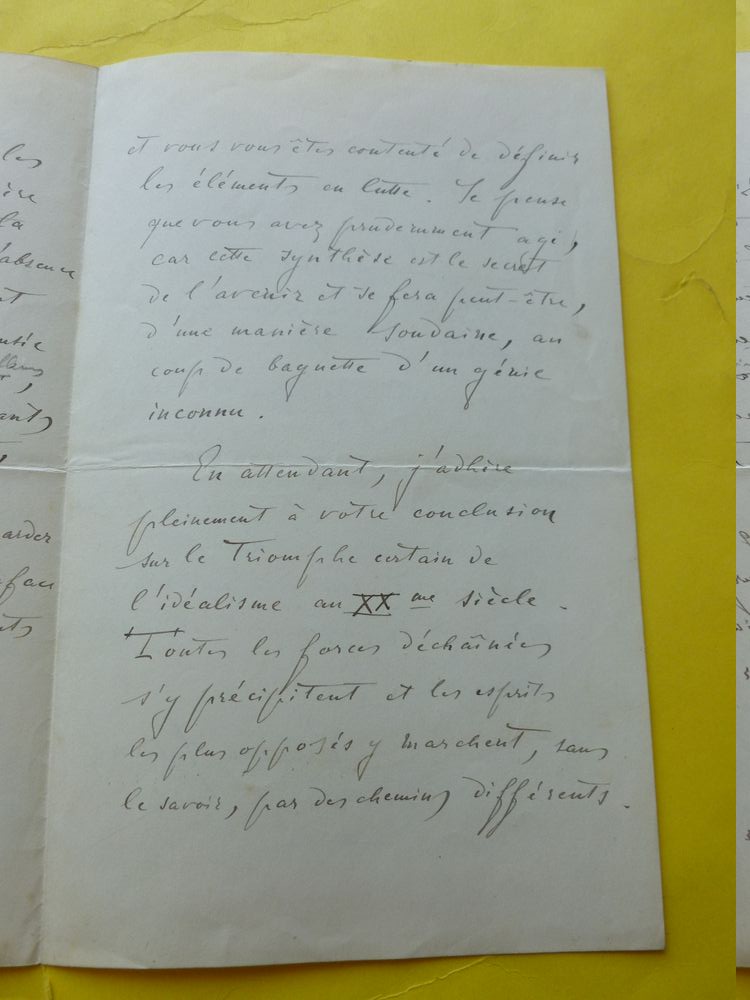 les
la
absence
et vous vous êtes contenté de définir
les éléments en lutte. Je pense
que vous avez prudemment agi,
car cette synthèse est le secret
de l'avenir et se fera peut-être,
d'une manière soudaine, au
coup de baguette d'un génie
inconnu.
En attendant, j'adhère
pleinement à votre conclusion
sur le Triomphe certain de
l'idéalisme au XXme siècle.
Toutes les forces déchaînées
s'y précipitent et les esprits
les plus opposés y marchent, sans
le savoir, par des chemins différents.